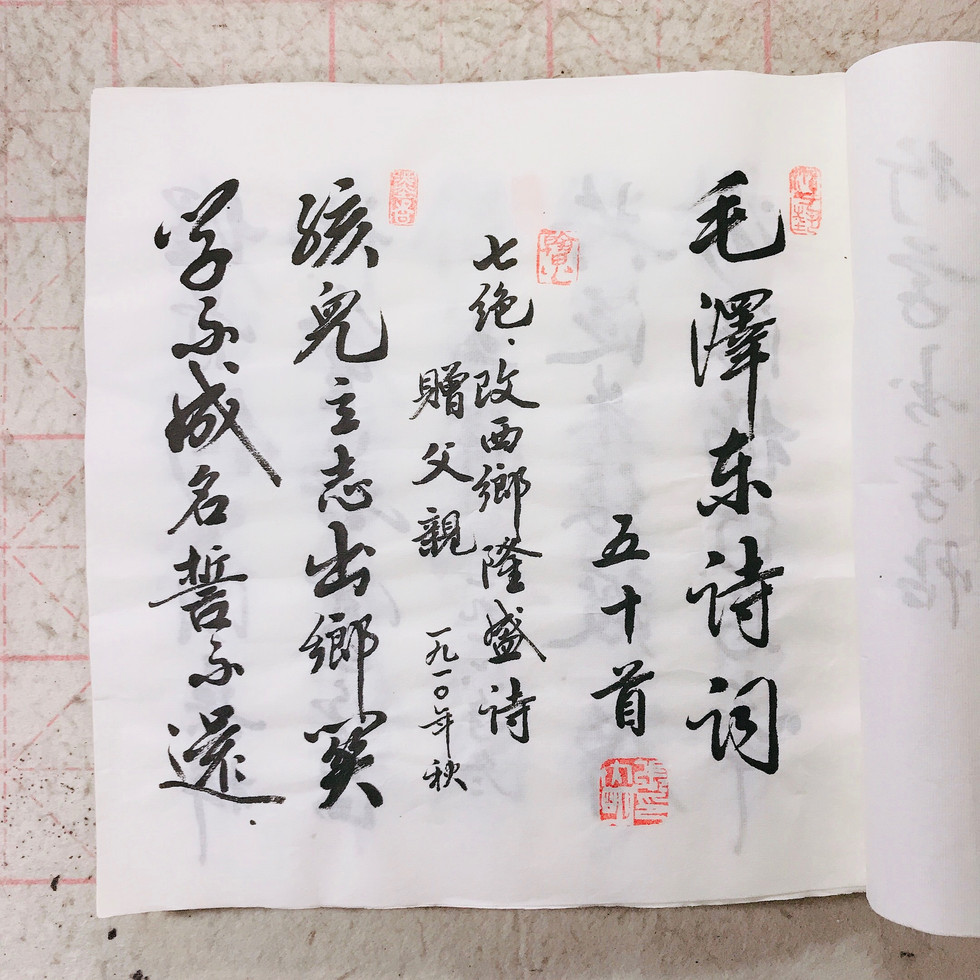 毛澤东诗词
五十首
七绝·改西鄉隆盛诗
贈父親 一九一〇年秋
孩兒立志出鄉关
学不成名誓不還.